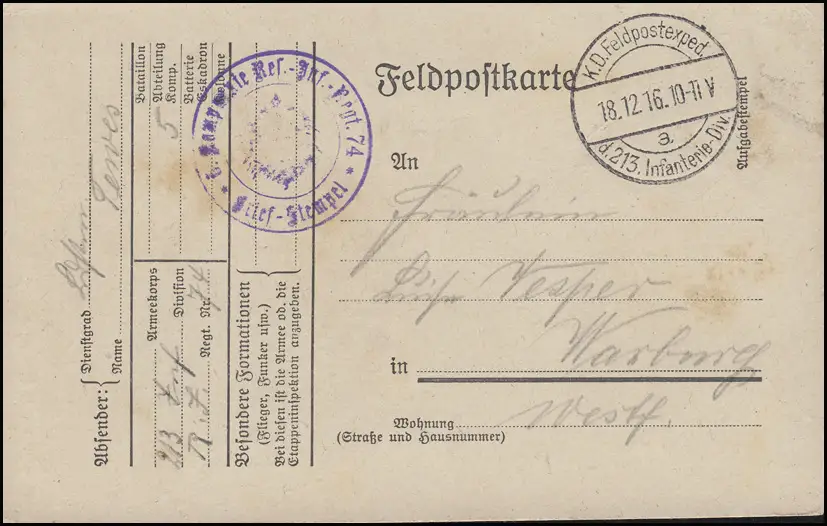 Feldpostkarte
K.D.Feldpostexped.
18.12.16.10-11 V
a.
d.213. Infanterie-Div.
Aufgabestempel
Kompagnie Res.-Inf.-Regt. 74
* Brief-Stempel *
An
Fräulein
Vesper
in Warburg
Westf.
Wohnung
(Straße und Hausnummer)
Absender:
Dienstgrad
Name
Bataillon
Abteilung
Komp. 5
Batterie
Eskadron
Kolonne
Armeekorps
213 Inf Division
R. I. Regt. Nr. 74
Besondere Formationen
(Flieger, Funker usw.)
Bei diesen ist die Armee od. die
Etappeninspektion anzugeben.